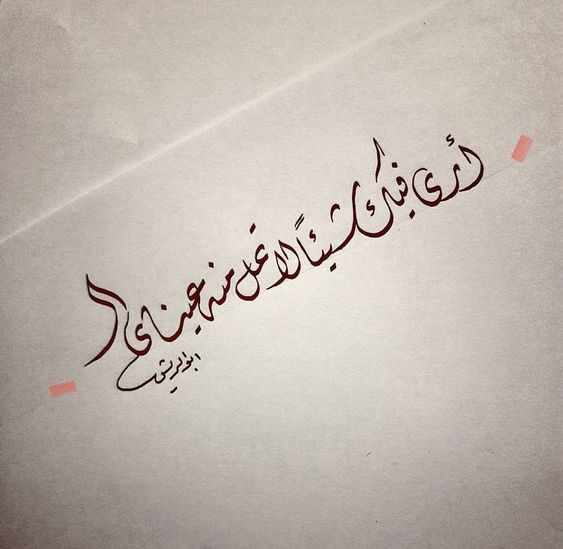 أرى فيك شيئاً لا تمل منه عيناي !
ابو لريش